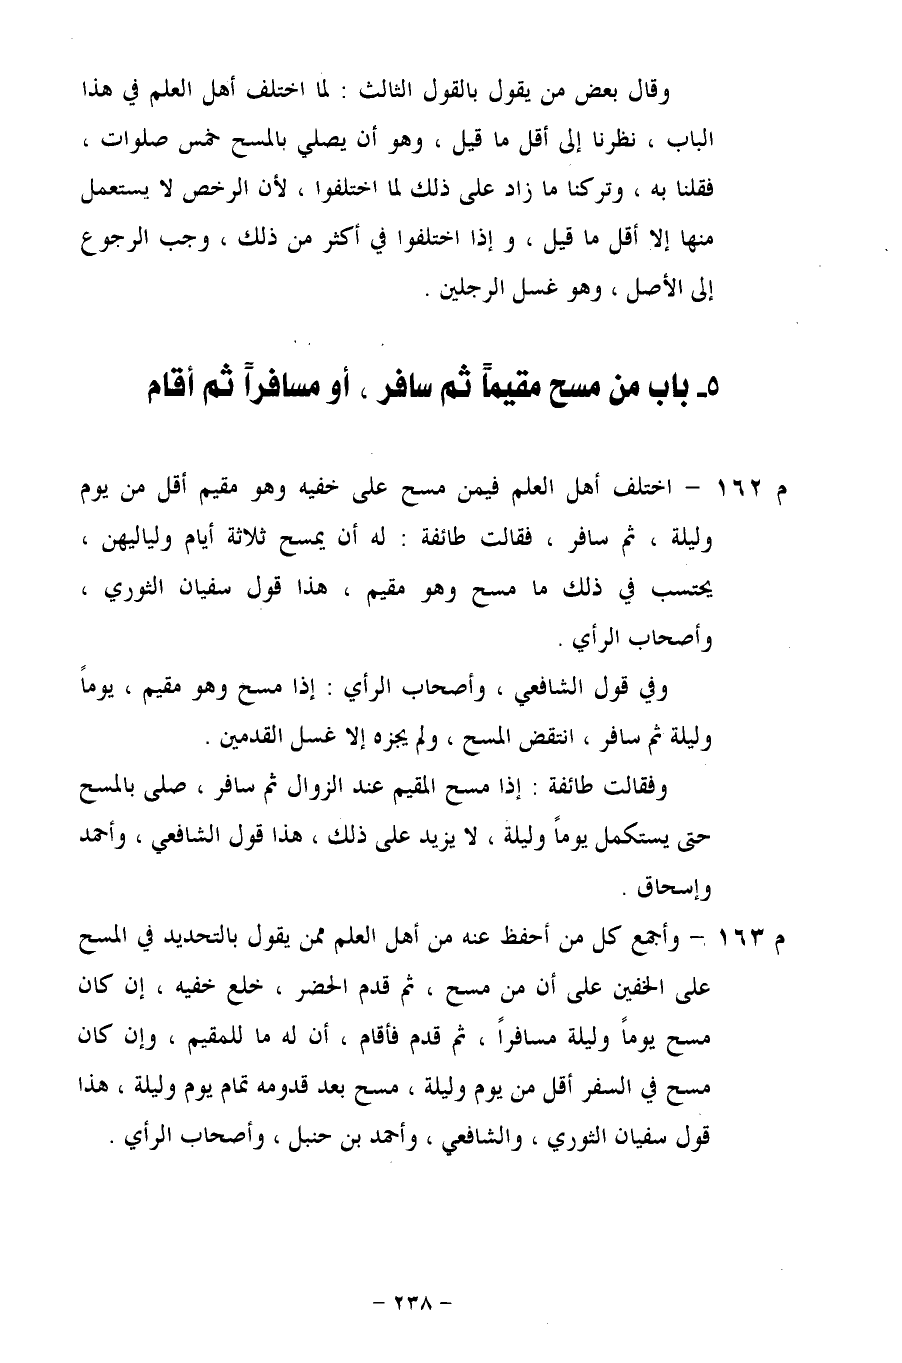 وقال بعض من يقول بالقول الثالث : لما اختلف أهل العلم في هذا
الباب ، نظرنا إلى أقل ما قيل ، وهو أن يصلي بالمسح خمس صلوات ،
فقلنا به ، وتركنا ما زاد على ذلك لما اختلفوا ، لأن الرخص لا يستعمل
منها إلا أقل ما قيل ، و إذا اختلفوا في أكثر من ذلك ، وجب الرجوع
إلى الأصل ، وهو غسل الرجلين .
٥ـ باب من مسح مقيماً ثم سافر ، أو مسافراً ثم أقام
م ١٦٢ – اختلف أهل العلم فيمن مسح على خفيه وهو مقيم أقل من يوم
وليلة ، ثم سافر ، فقالت طائفة : له أن يمسح ثلاثة أيام ولياليهن ،
يحتسب في ذلك ما مسح وهو مقيم ، هذا قول سفيان الثوري ،
وأصحاب الرأي .
وفي قول الشافعي ، وأصحاب الرأي : إذا مسح وهو مقيم ، يوماً
وليلة ثم سافر ، انتقض المسح ، ولم يجزه إلا غسل القدمين .
وفقالت طائفة : إذا مسح المقيم عند الزوال ثم سافر ، صلى بالمسح
حتى يستكمل يوماً وليلة ، لا يزيد على ذلك ، هذا قول الشافعي ، وأحمد
وإسحاق .
م ١٦٣ – وأجمع كل من أحفظ عنه من أهل العلم ممن يقول بالتحديد في المسح
على الخفين على أن من مسح ، ثم قدم الحضر ، خلع خفيه ، إن كان
مسح يوماً وليلة مسافراً ، ثم قدم فأقام ، أن له ما للمقيم ، وإن كان
مسح في السفر أقل من يوم وليلة ، مسح بعد قدومه تمام يوم وليلة ، هذا
قول سفيان الثوري ، والشافعي ، وأحمد بن حنبل ، وأصحاب الرأي .
– ٢٣٨ –